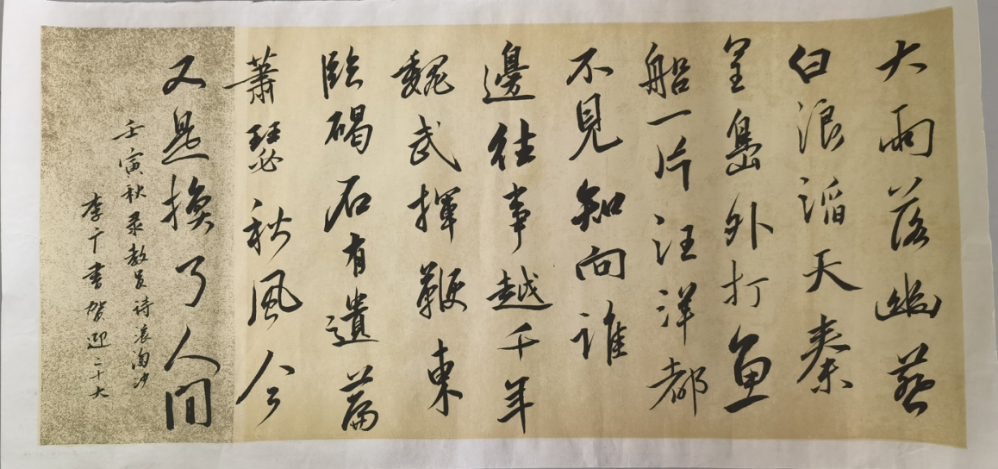 大雨落幽燕
白浪滔天秦
皇島外打魚
船一片汪洋都
不見知向誰
邊往事越千年
魏武揮鞭東
臨碣石有遺篇
蕭瑟秋風今
又是換了人间
壬寅秋录教员诗浪淘沙
李千書賀迎二十大